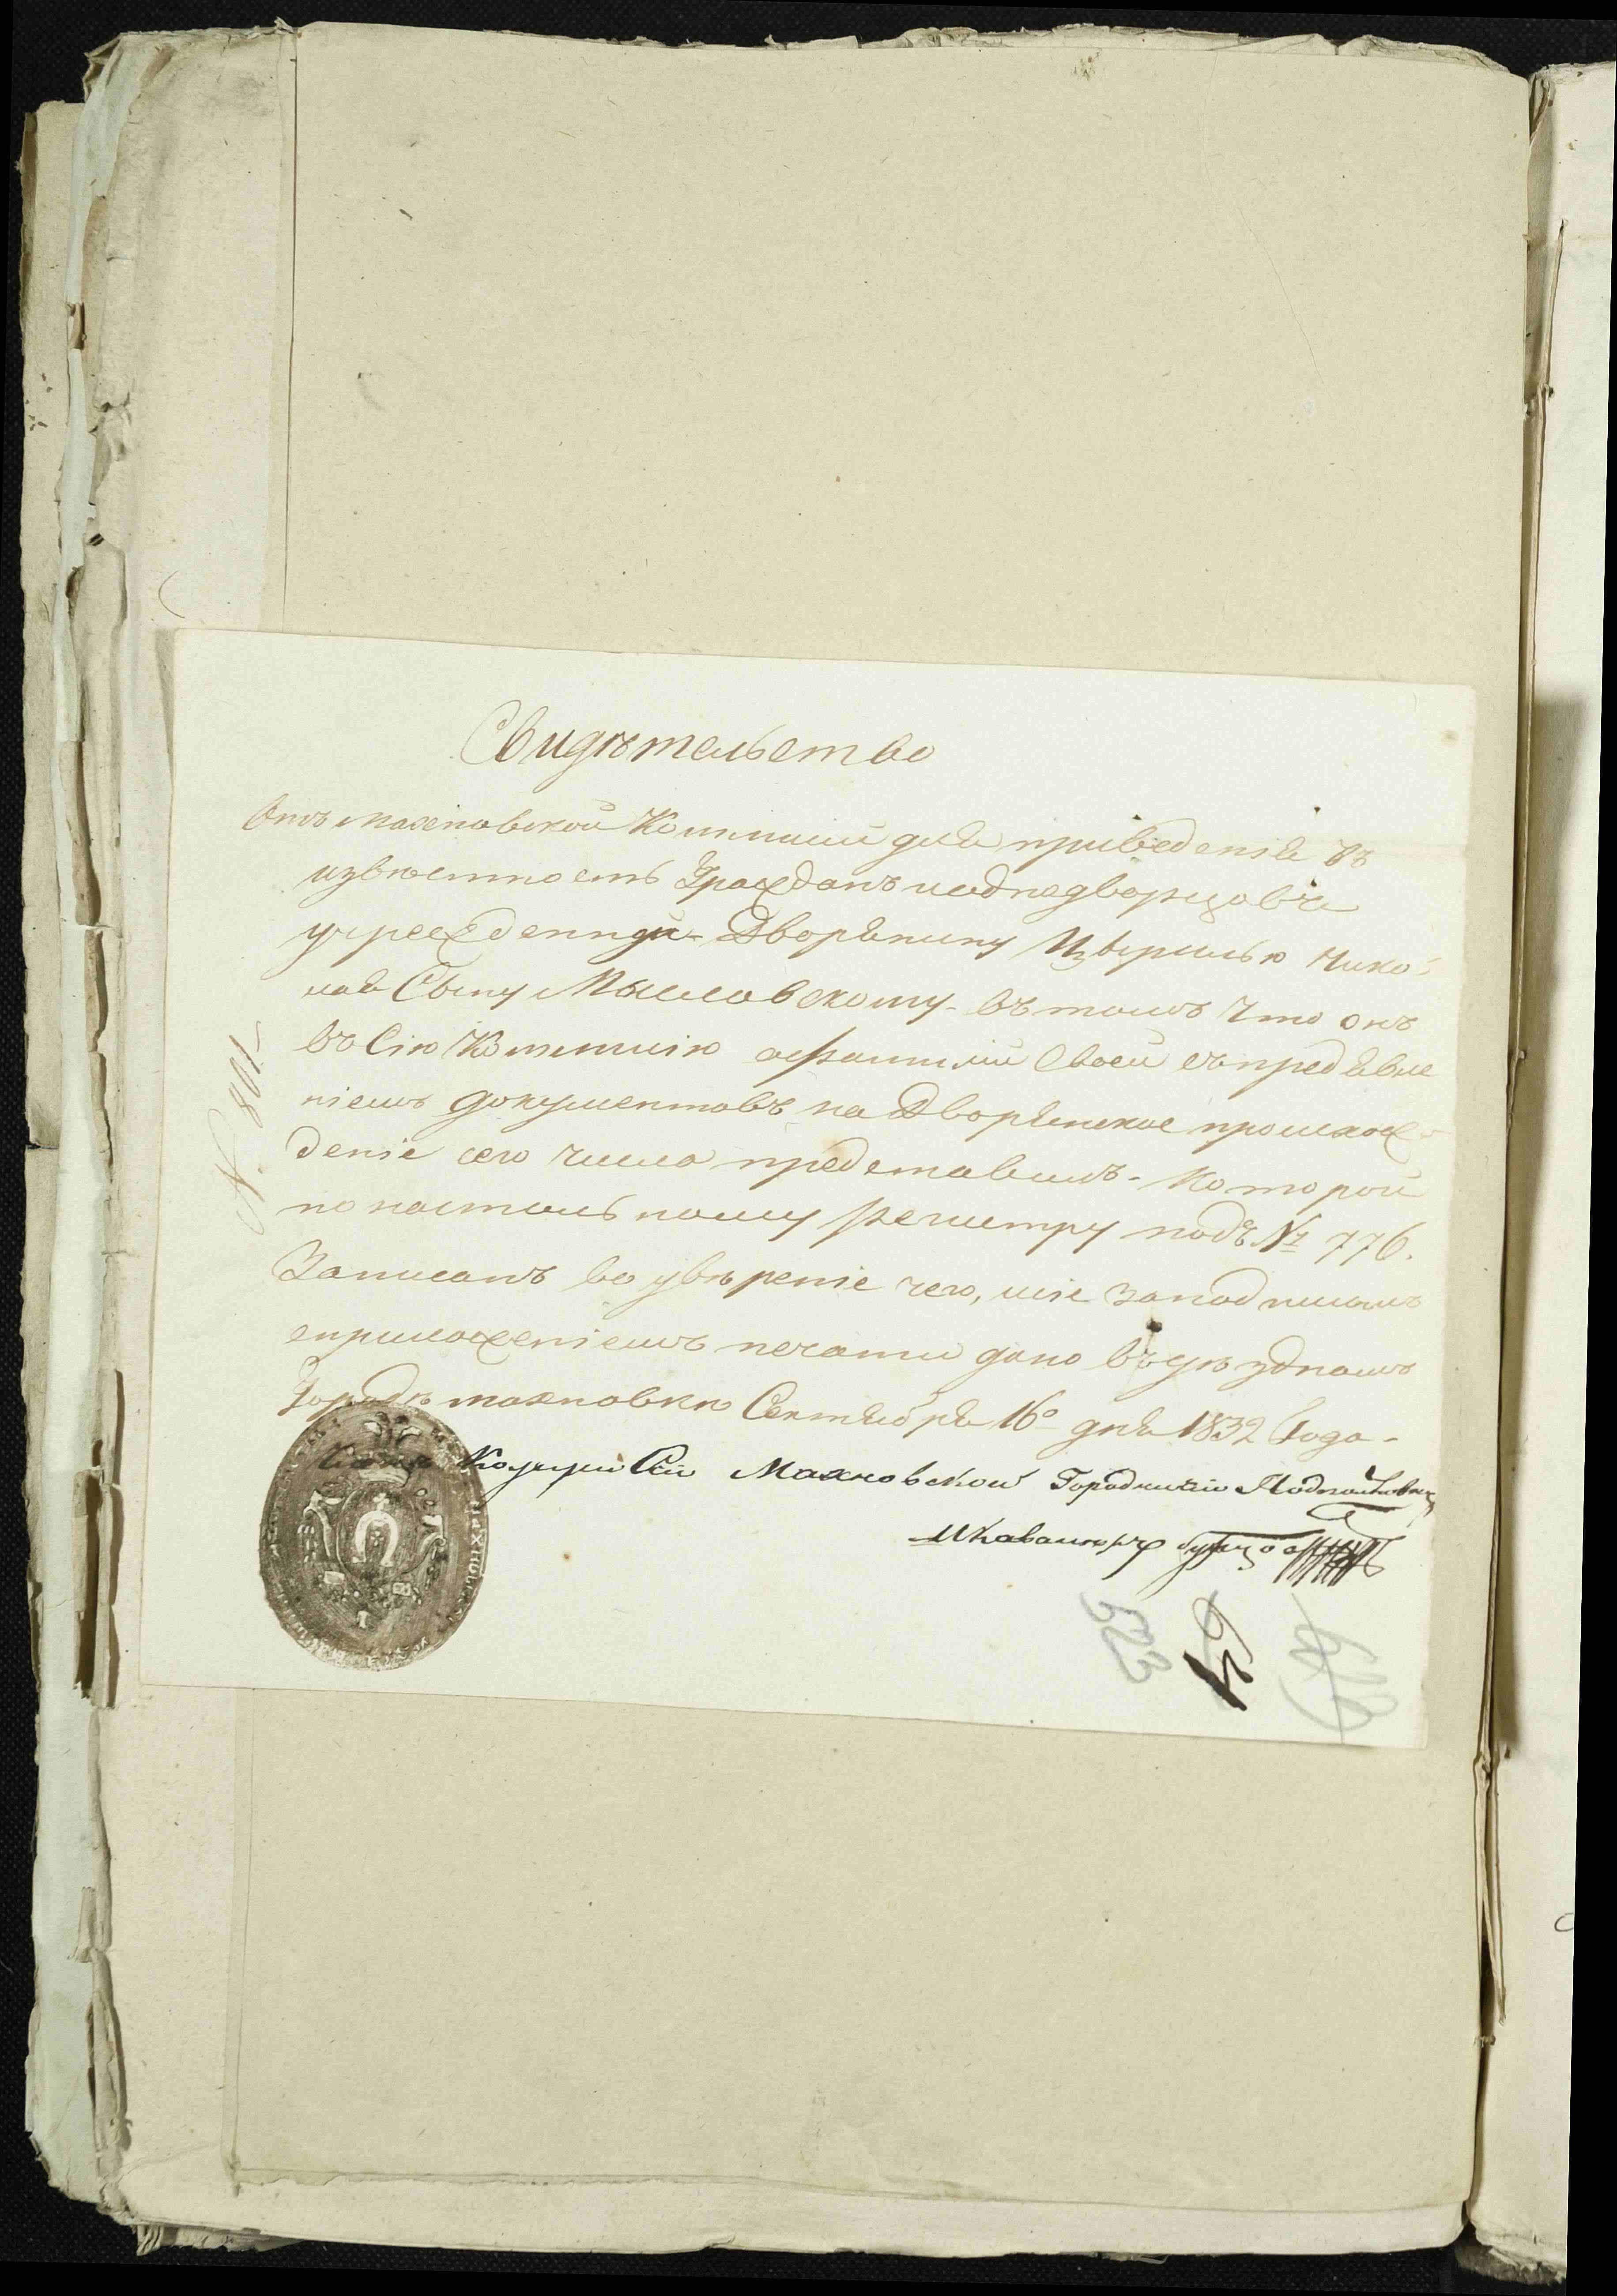 Свидѣтельство
Отъ Махновской Коммисіи для приведенія въ
извѣстность Гражданъ и однодворцовъ
учрежденной Дворянину Нико-
лая Сыну Мысловскому - въ томъ что онъ
въ Сію Коммисію о фамиліи Своей съ предъявле
ніемъ документовъ на Дворянское происхож-
деніе сего числа представилъ - которой
по настольному регистру подъ № 776.
Записанъ во увѣреніе чего, сіе за подписомъ
с приложеніемъ печати дано въ уѣздномъ
Городѣ Махновкѣ Сентября 16º дня 1832 Года -
Махновской Городничій Подполковникъ
и Кавалеръ
N. 801
523
64